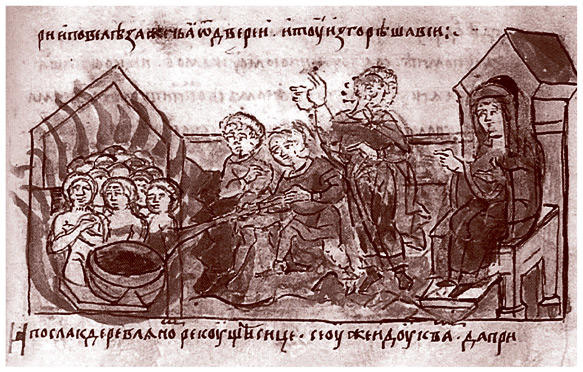 ри и повелѣ зажечь а ѿ двереи · и тоу изгорѣша вси ;·
И посла к деревляно рекоущи сице · се оуже идоу к ва · да при